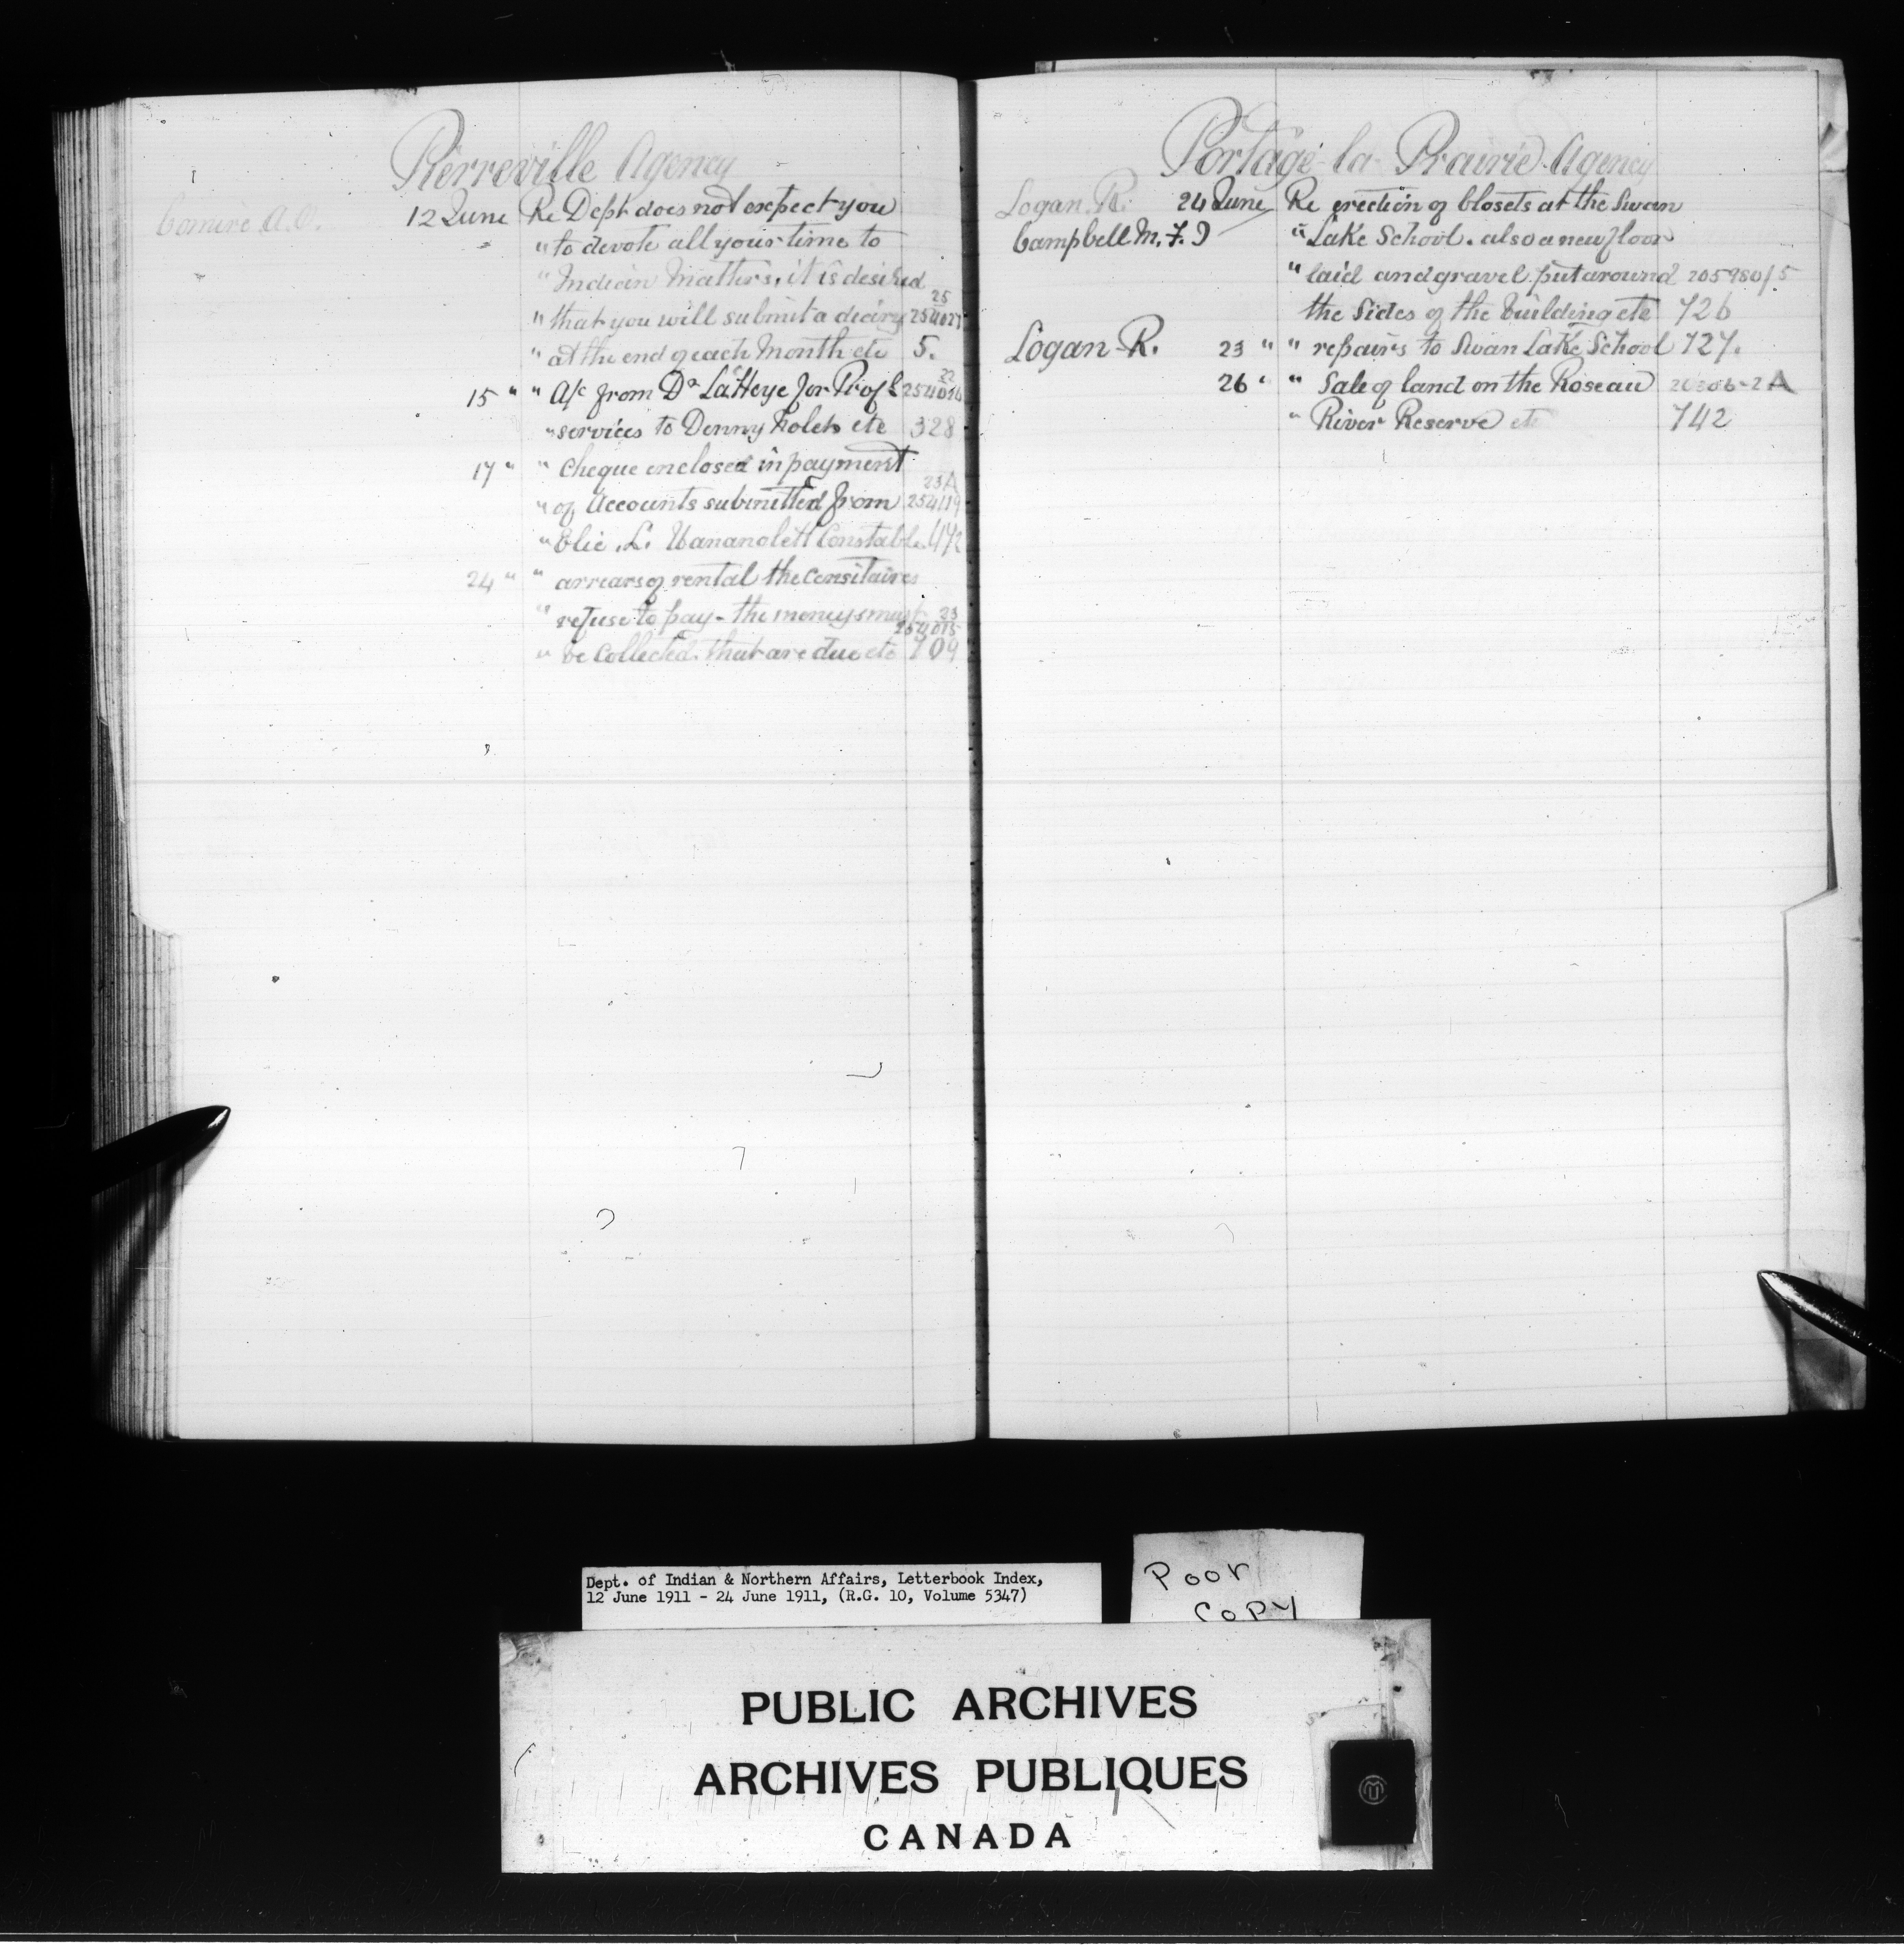 Pierreville Agency
Comire A.O. 12 June Re Dept does not expect you
" to devote all your time to
" Indian Matters, it is desired
25
" that you will submit a diary 254027
" at the end of each Month etc 5.
22
15 " " A/c from Dr La Heye for Prof l 254014
" services to Denny etc 328
17 " " Cheque enclosed in payment
23A
" of Accounts submitted from 254119
" Elie L. Constable 442
24 " " arrears of rental the Censitaires
" refuse to pay - the moneys must 23
254015
" be Collected that are due etc 709
Portage la Prairie Agency
Logan R. 24 June Re erection of Closets at the Swan
Campbell M. F. J " Lake School. also a new floor
" laid and gravel put around 205980/5
the Sides of the building etc 726
Logan R. 23 " " repairs to Swan Lake School 727.
26 " " Sale of land on the Roseau
" River Reserve etc 742
Dept. of Indian & Northern Affairs, Letterbook Index,
12 June 1911 - 24 June 1911, (R.G. 10, Volume 5347)
Poor
Copy
PUBLIC ARCHIVES
ARCHIVES PUBLIQUES
CANADA